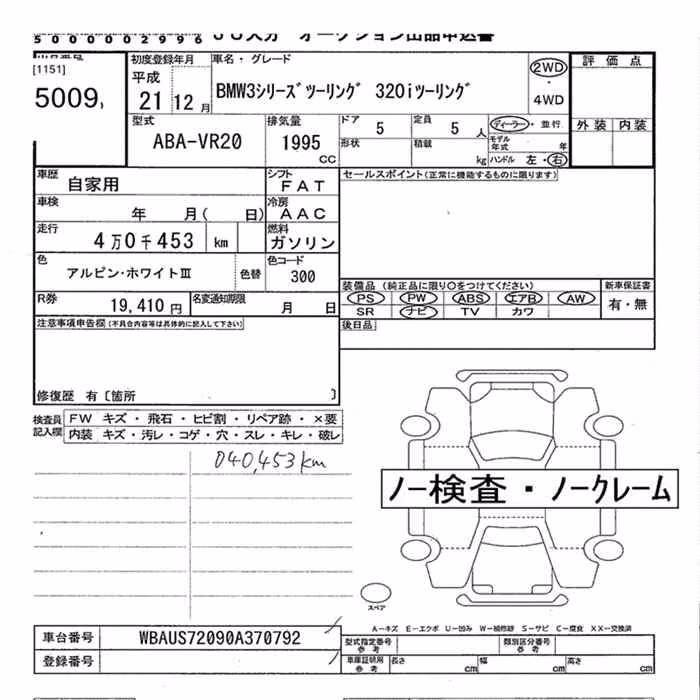 5000002996 JU大分 オークション出品申込書
[1151]
5009
初度登録年月
平成
21 12月
車名・グレード
BMW3シリーズツーリング 320iツーリング
2WD
・
4WD
評価点
外装 内装
型式
ABA-VR20
排気量
1995
CC
ドア
5
定員
5 人
形状
積載
kg
ディーラー・並行
モデル年式 年
ハンドル 左・右
車歴
自家用
シフト
FAT
セールスポイント(正常に機能するものに限ります)
車検
年 月( 日)
冷房
AAC
走行
4万0千453 km
燃料
ガソリン
色
アルピン・ホワイトⅢ
色替
色コード
300
装備品(純正品に限り〇をつけてください)
新車保証書
PS PW ABS エアB AW
有・無
SR ナビ TV カワ
R券
19,410 円
名変通知期限
月 日
後日品
注意事項申告欄(不具合内容等は具体的に記入して下さい)
修復歴 有〔箇所 〕
検査員記入欄
FW キズ・飛石・ヒビ割・リペア跡・×要
内装 キズ・汚レ・コゲ・穴・スレ・キレ・破レ
040,453km
ノー検査・ノークレーム
スペア
A-キズ E-エクボ U-凹み W-補修跡 S-サビ C-腐食 XX-交換済
車台番号
WBAUS72090A370792
型式指定番号
参考
類別区分番号
参考
登録番号
車庫証明用
参考
長さ cm
幅 cm
高さ cm